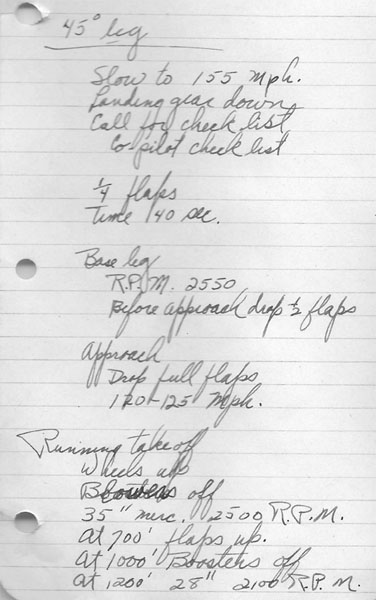 45° leg
Slow to 155 mph.
Landing gear down
Call for check list
Co-pilot check list
1/4 flaps
Time 40 sec.
Base leg
R.P.M. 2550
Before approach drop 1/2 flaps
Approach
Drop full flaps
120-125 mph.
Running takeoff
Wheels up
off
35" merc. 2500 R.P.M.
At 700' flaps up.
At 1000' Boosters off
At 1200' 28" 2100 R.P.M.